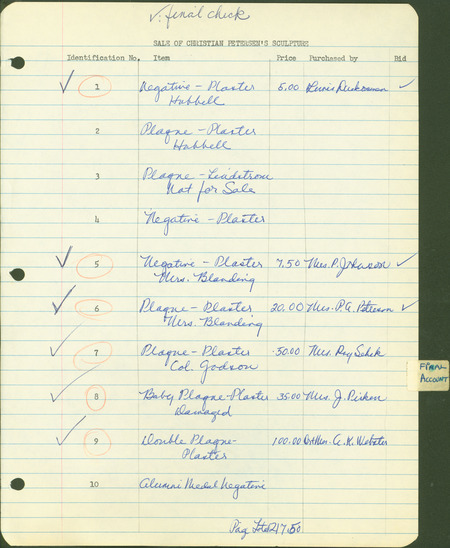 ✓. final check
SALE OF CHRISTIAN PETERSEN'S SCULPTURE
Identification No. Item Price Purchased by Bid
✓ 1 Negative - Plaster 5.00 ✓
Hubbell
2 Plaque - Plaster
Hubbell
3 Plaque - Lindstrom
Not for Sale
4 Negative - Plaster
✓ 5 Negative - Plaster 7.50 Mrs. P. Johnson ✓
Mrs. Blanding
✓ 6 Plaque - Plaster 20.00 Mrs. P.G. Peterson ✓
Mrs. Blanding
✓ 7 Plaque - Plaster 50.00 Mrs. Ray
Col. Godson
FINAL
ACCOUNT
✓ 8 Baby Plaque - Plaster 35.00 Mrs. J.
Damaged
✓ 9 Double Plaque - 100.00 Mrs. A. K. Webster
Plaster
10 Alumni Medal Negative
Pag Total 217.50